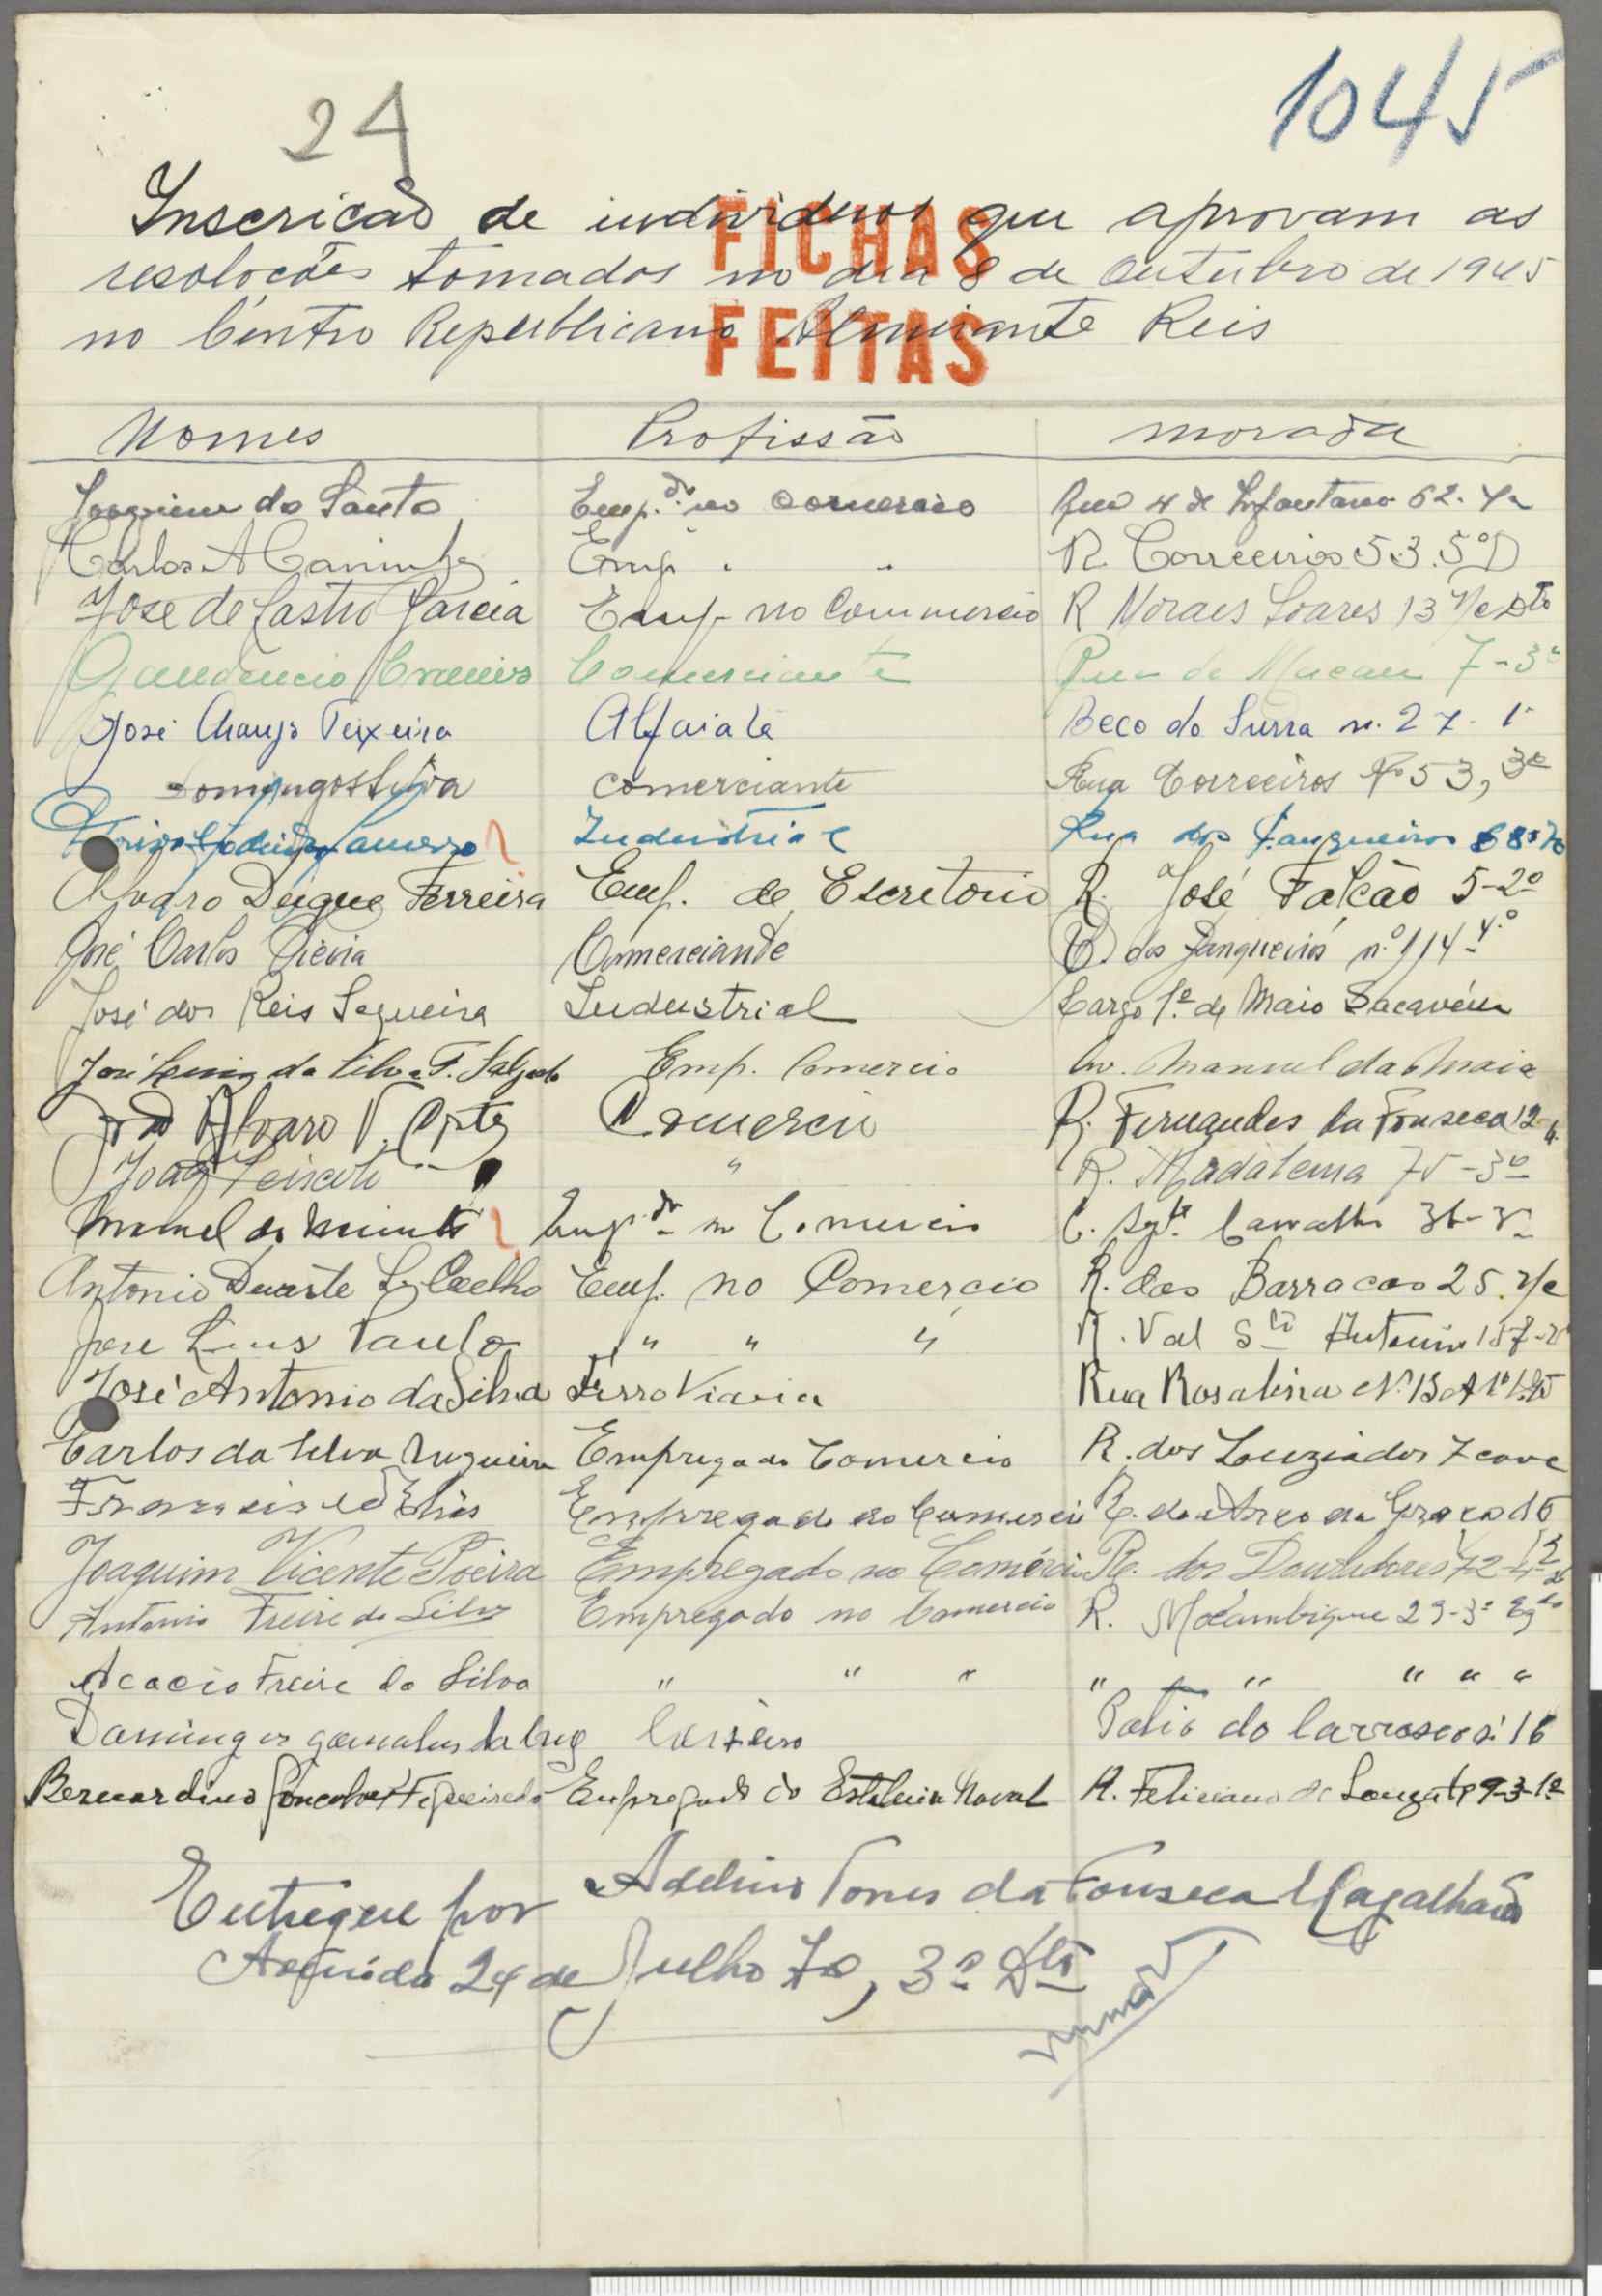 24
1045
Inscricão de individuos que aprovam as
FICHAS
resolocões tomadas no dia 8 de Outubro de 1945
no Centro Republicano Almirante Reis
FEITAS
Nomes Profissão morada
Joaquim do Santo Emp.do no comercio Rua 4 de Infantaria 62.
Carlos A Caninhas Emp " " R. Correeiros 53.5º D
José de Castro Garcia Emp. no Commercio R Moraes Soares 13 r/c Dto
Gaudencio Comerciante Rua de Macau 7-3º
José Araujo Teixeira Alfaiate Beco do Surra n. 27. 1º
Domingos Silva comerciante Rua Correeiros Nº 53, 3º
Industrial Rua dos Fanqueiros 68
Alvaro Duque Ferreira Emp. de Escritorio R. José Falcão 5-2º
José Carlos Vieira Comerciante R. dos Fanqueiros n.º 114-4.º
José dos Reis Sequeira Industrial Largo 1º de Maio Sacavém
José da Silva F. Salgado Emp. Comercio Av. Manuel da Maia
Alvaro V. Comercio R. Fernandes da Fonseca 12
João " R. Madalena 75-3º
Manuel do Emp.do no Comercio C. Agt. Carvalho 36-
Antonio Duarte L. Coelho Emp. no Comercio R. das Barracas 25. r/c
Jose Luis Paulo " " " R. Val Sto Antonio 157
José Antonio da Silva Ferro Viario Rua Rosalina Nº 13 A 1º
Carlos da Silva Nugueira Empregado Comercio R. dos Luziadas 7 cave
Francisco Elias Empregado no Comercio R. do Arco da Graça 16
Joaquim Vicente Poeira Empregado no Comércio R. dos Douradores 72
Antonio Freire da Silva Empregado no Comercio R. Moçambique 29-3º Eqdo
Acacio Freire da Silva " " " " " " " " "
Domingos goncalves da Cruz Corteiro Patio do Carrasco nº 16
Bernardino Goncalves Figueiredo Empregado do Estaleiro Naval R. Feliciano de Souza 9-3-1º
Entregue por Adelino Torres da Fonseca Magalhães
Avenida 24 de Julho 70, 3º Dto